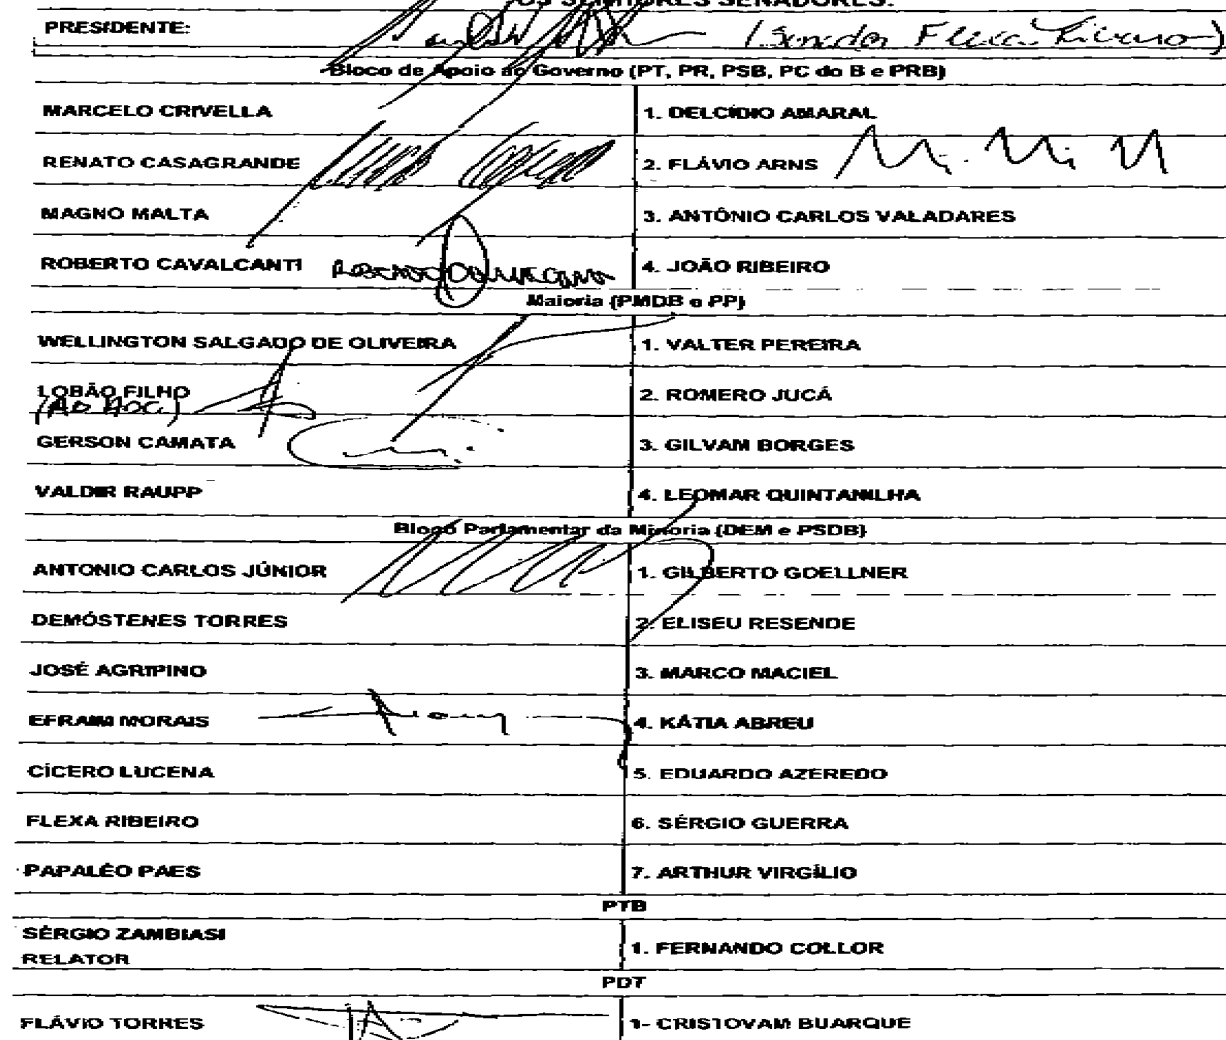 OS SENHORES SENADORES:
PRESIDENTE: (Senador Flexa Ribeiro)
Bloco de Apoio ao Governo (PT, PR, PSB, PC do B e PRB)
MARCELO CRIVELLA 1. DELCÍDIO AMARAL
RENATO CASAGRANDE 2. FLÁVIO ARNS
MAGNO MALTA 3. ANTÔNIO CARLOS VALADARES
ROBERTO CAVALCANTI 4. JOÃO RIBEIRO
Maioria (PMDB e PP)
WELLINGTON SALGADO DE OLIVEIRA 1. VALTER PEREIRA
LOBÃO FILHO 2. ROMERO JUCÁ
(AD HOC)
GERSON CAMATA 3. GILVAM BORGES
VALDIR RAUPP 4. LEOMAR QUINTANILHA
Bloco Parlamentar da Minoria (DEM e PSDB)
ANTONIO CARLOS JÚNIOR 1. GILBERTO GOELLNER
DEMÓSTENES TORRES 2. ELISEU RESENDE
JOSÉ AGRIPINO 3. MARCO MACIEL
EFRAIM MORAIS 4. KÁTIA ABREU
CÍCERO LUCENA 5. EDUARDO AZEREDO
FLEXA RIBEIRO 6. SÉRGIO GUERRA
PAPALÉO PAES 7. ARTHUR VIRGÍLIO
PTB
SÉRGIO ZAMBIASI
RELATOR 1. FERNANDO COLLOR
PDT
FLÁVIO TORRES 1- CRISTOVAM BUARQUE